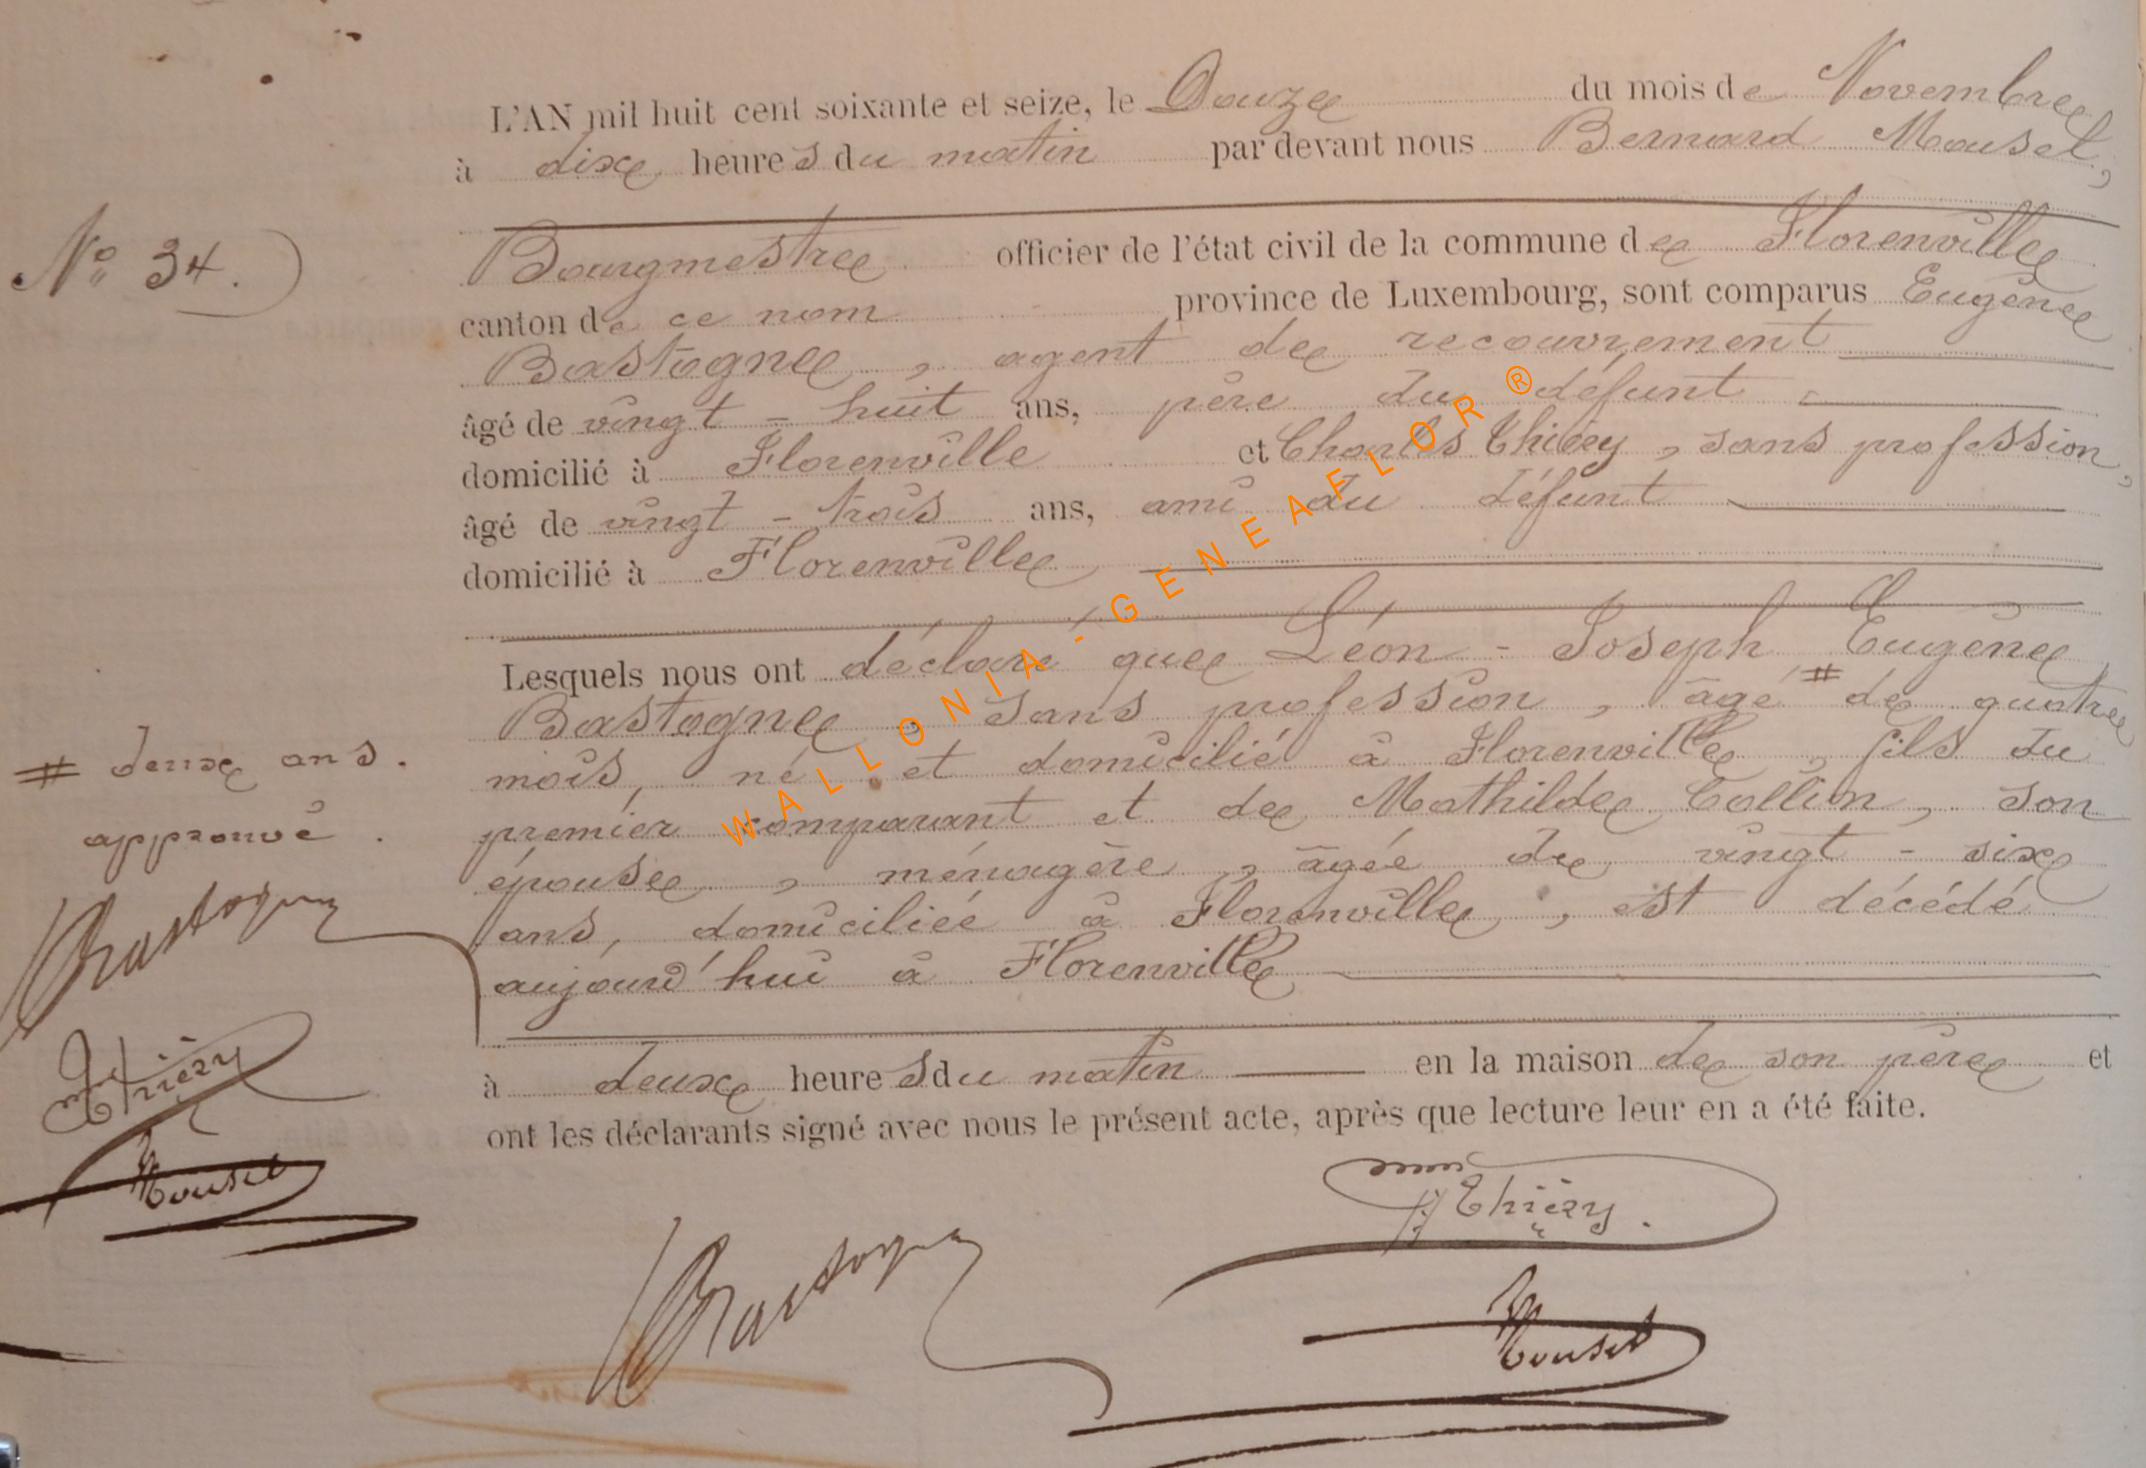 L'AN mil huit cent soixante et seize, le Douze du mois de Novembre
à dix heures du matin par devant nous Bernard Mouset,
N° 34.
Bourgmestre officier de l'état civil de la commune de Florenville
canton de ce nom province de Luxembourg, sont comparus Eugène
Bastogne, agent de recouvrement
âgé de vingt-huit ans, père du défunt,
domicilié à Florenville et Charles Thiéry, sans profession,
âgé de vingt-trois ans, ami du défunt
domicilié à Florenville
Lesquels nous ont déclaré que Léon-Joseph Eugène
Bastogne, sans profession, âgé # de quatre
mois, né et domicilié à Florenville, fils du
# deux ans.
premier comparant et de Mathilde Collin, son
approuvé.
épouse, ménagère, âgée de vingt-six
ans, domiciliée à Florenville, est décédé
Bastogne
aujourd'hui à Florenville
Thiéry
à deux heures du matin en la maison de son père et
ont les déclarants signé avec nous le présent acte, après que lecture leur en a été faite.
Mouset
Thiéry.
Bastogne
Mouset
WALLONIA-GENEAFLOR ®